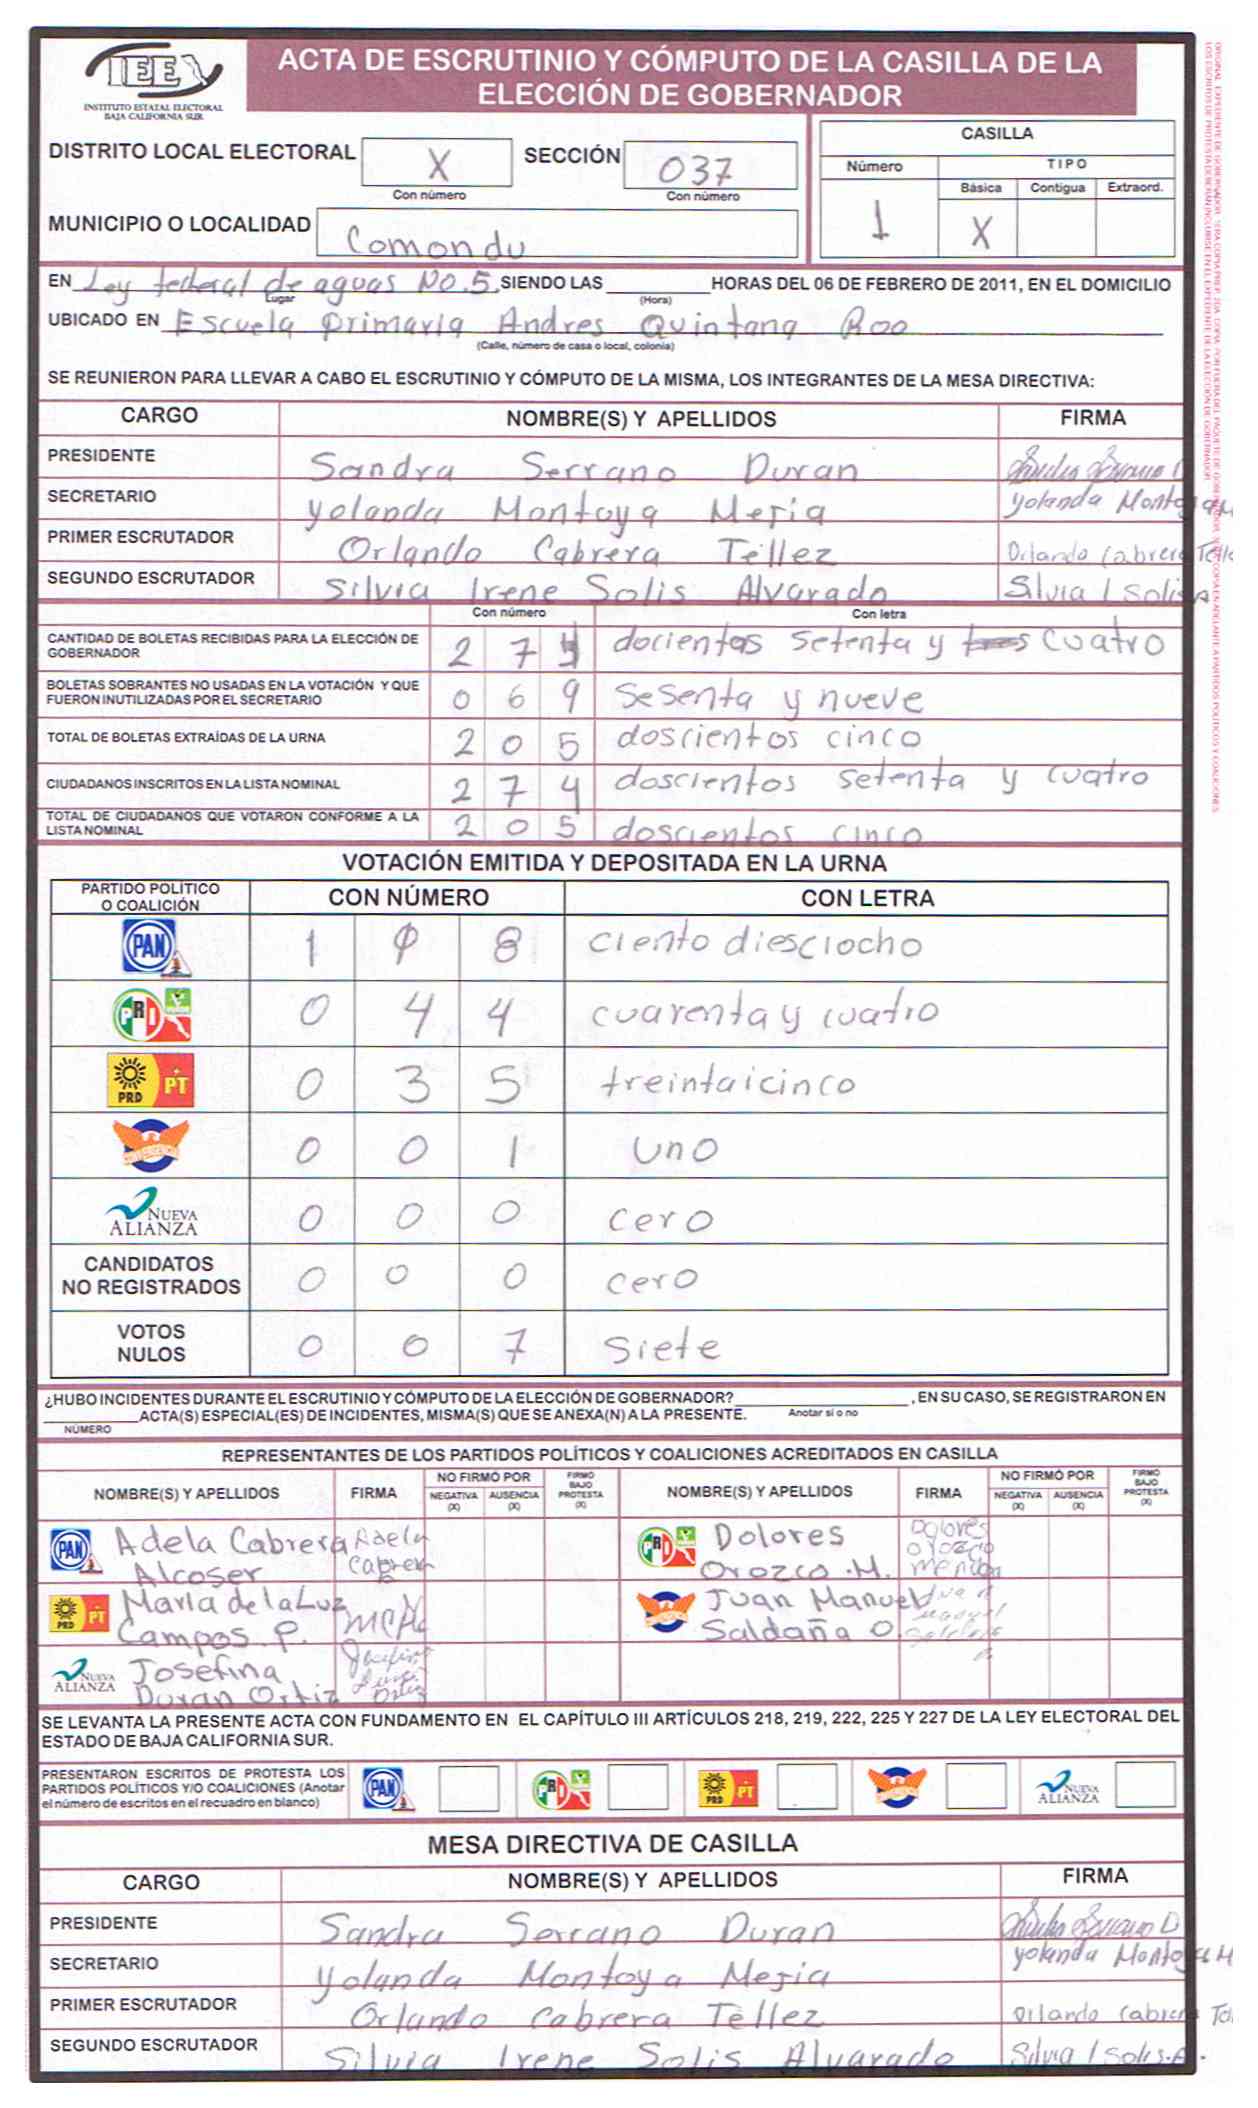 IEE
INSTITUTO ESTATAL ELECTORAL
BAJA CALIFORNIA SUR
ACTA DE ESCRUTINIO Y CÓMPUTO DE LA CASILLA DE LA
ELECCIÓN DE GOBERNADOR
DISTRITO LOCAL ELECTORAL X SECCIÓN 037
Con número Con número
CASILLA
Número TIPO
Básica Contigua Extraord.
1 X
MUNICIPIO O LOCALIDAD Comondu
EN Ley federal de aguas No.5 SIENDO LAS HORAS DEL 06 DE FEBRERO DE 2011, EN EL DOMICILIO
Lugar (Hora)
UBICADO EN Escuela primaria Andres Quintana Roo
(Calle, número de casa o local, colonia)
SE REUNIERON PARA LLEVAR A CABO EL ESCRUTINIO Y CÓMPUTO DE LA MISMA, LOS INTEGRANTES DE LA MESA DIRECTIVA:
CARGO NOMBRE(S) Y APELLIDOS FIRMA
PRESIDENTE Sandra Serrano Duran
SECRETARIO Yolanda Montoya Mejia Yolanda Montoya M
PRIMER ESCRUTADOR Orlando Cabrera Téllez Orlando Cabrera Télle
SEGUNDO ESCRUTADOR Silvia Irene Solis Alvarado Silvia I Solis A
Con número Con letra
CANTIDAD DE BOLETAS RECIBIDAS PARA LA ELECCIÓN DE
GOBERNADOR 2 7 4 docientos setenta y tres cuatro
BOLETAS SOBRANTES NO USADAS EN LA VOTACIÓN Y QUE
FUERON INUTILIZADAS POR EL SECRETARIO 0 6 9 sesenta y nueve
TOTAL DE BOLETAS EXTRAÍDAS DE LA URNA 2 0 5 doscientos cinco
CIUDADANOS INSCRITOS EN LA LISTA NOMINAL 2 7 4 doscientos setenta y cuatro
TOTAL DE CIUDADANOS QUE VOTARON CONFORME A LA
LISTA NOMINAL 2 0 5 doscientos cinco
VOTACIÓN EMITIDA Y DEPOSITADA EN LA URNA
PARTIDO POLÍTICO
O COALICIÓN CON NÚMERO CON LETRA
PAN 1 8 ciento diesciocho
PRI 0 4 4 cuarenta y cuatro
PRD PT 0 3 5 treintaicinco
CONVERGENCIA 0 0 1 uno
NUEVA
ALIANZA 0 0 0 cero
CANDIDATOS
NO REGISTRADOS 0 0 0 cero
VOTOS
NULOS 0 0 7 siete
¿HUBO INCIDENTES DURANTE EL ESCRUTINIO Y CÓMPUTO DE LA ELECCIÓN DE GOBERNADOR? , EN SU CASO, SE REGISTRARON EN
Anotar sí o no
ACTA(S) ESPECIAL(ES) DE INCIDENTES, MISMA(S) QUE SE ANEXA(N) A LA PRESENTE.
NÚMERO
REPRESENTANTES DE LOS PARTIDOS POLÍTICOS Y COALICIONES ACREDITADOS EN CASILLA
NOMBRE(S) Y APELLIDOS FIRMA NO FIRMÓ POR NEGATIVA (X) AUSENCIA (X) FIRMÓ BAJO PROTESTA (X) NOMBRE(S) Y APELLIDOS FIRMA NO FIRMÓ POR NEGATIVA (X) AUSENCIA (X) FIRMÓ BAJO PROTESTA (X)
PAN Adela Cabrera Adela PRI Dolores Dolores
Alcoser Cabrera Orozco .M. Orozco
PRD PT María de la Luz Juan Manuel
Campos P. Saldaña O.
NUEVA ALIANZA Josefina Josefina
Duran Ortiz Duran Ortiz
SE LEVANTA LA PRESENTE ACTA CON FUNDAMENTO EN EL CAPÍTULO III ARTÍCULOS 218, 219, 222, 225 Y 227 DE LA LEY ELECTORAL DEL
ESTADO DE BAJA CALIFORNIA SUR.
PRESENTARON ESCRITOS DE PROTESTA LOS
PARTIDOS POLÍTICOS Y/O COALICIONES (Anotar
el número de escritos en el recuadro en blanco)
PAN PRI PRD PT NUEVA ALIANZA
MESA DIRECTIVA DE CASILLA
CARGO NOMBRE(S) Y APELLIDOS FIRMA
PRESIDENTE Sandra Serrano Duran
SECRETARIO Yolanda Montoya Mejia Yolanda Montoya M
PRIMER ESCRUTADOR Orlando Cabrera Téllez Orlando Cabrera
SEGUNDO ESCRUTADOR Silvia Irene Solis Alvarado Silvia I Solis.A.